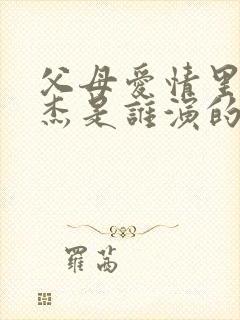 父母愛情里
杰是誰演的
羅茜